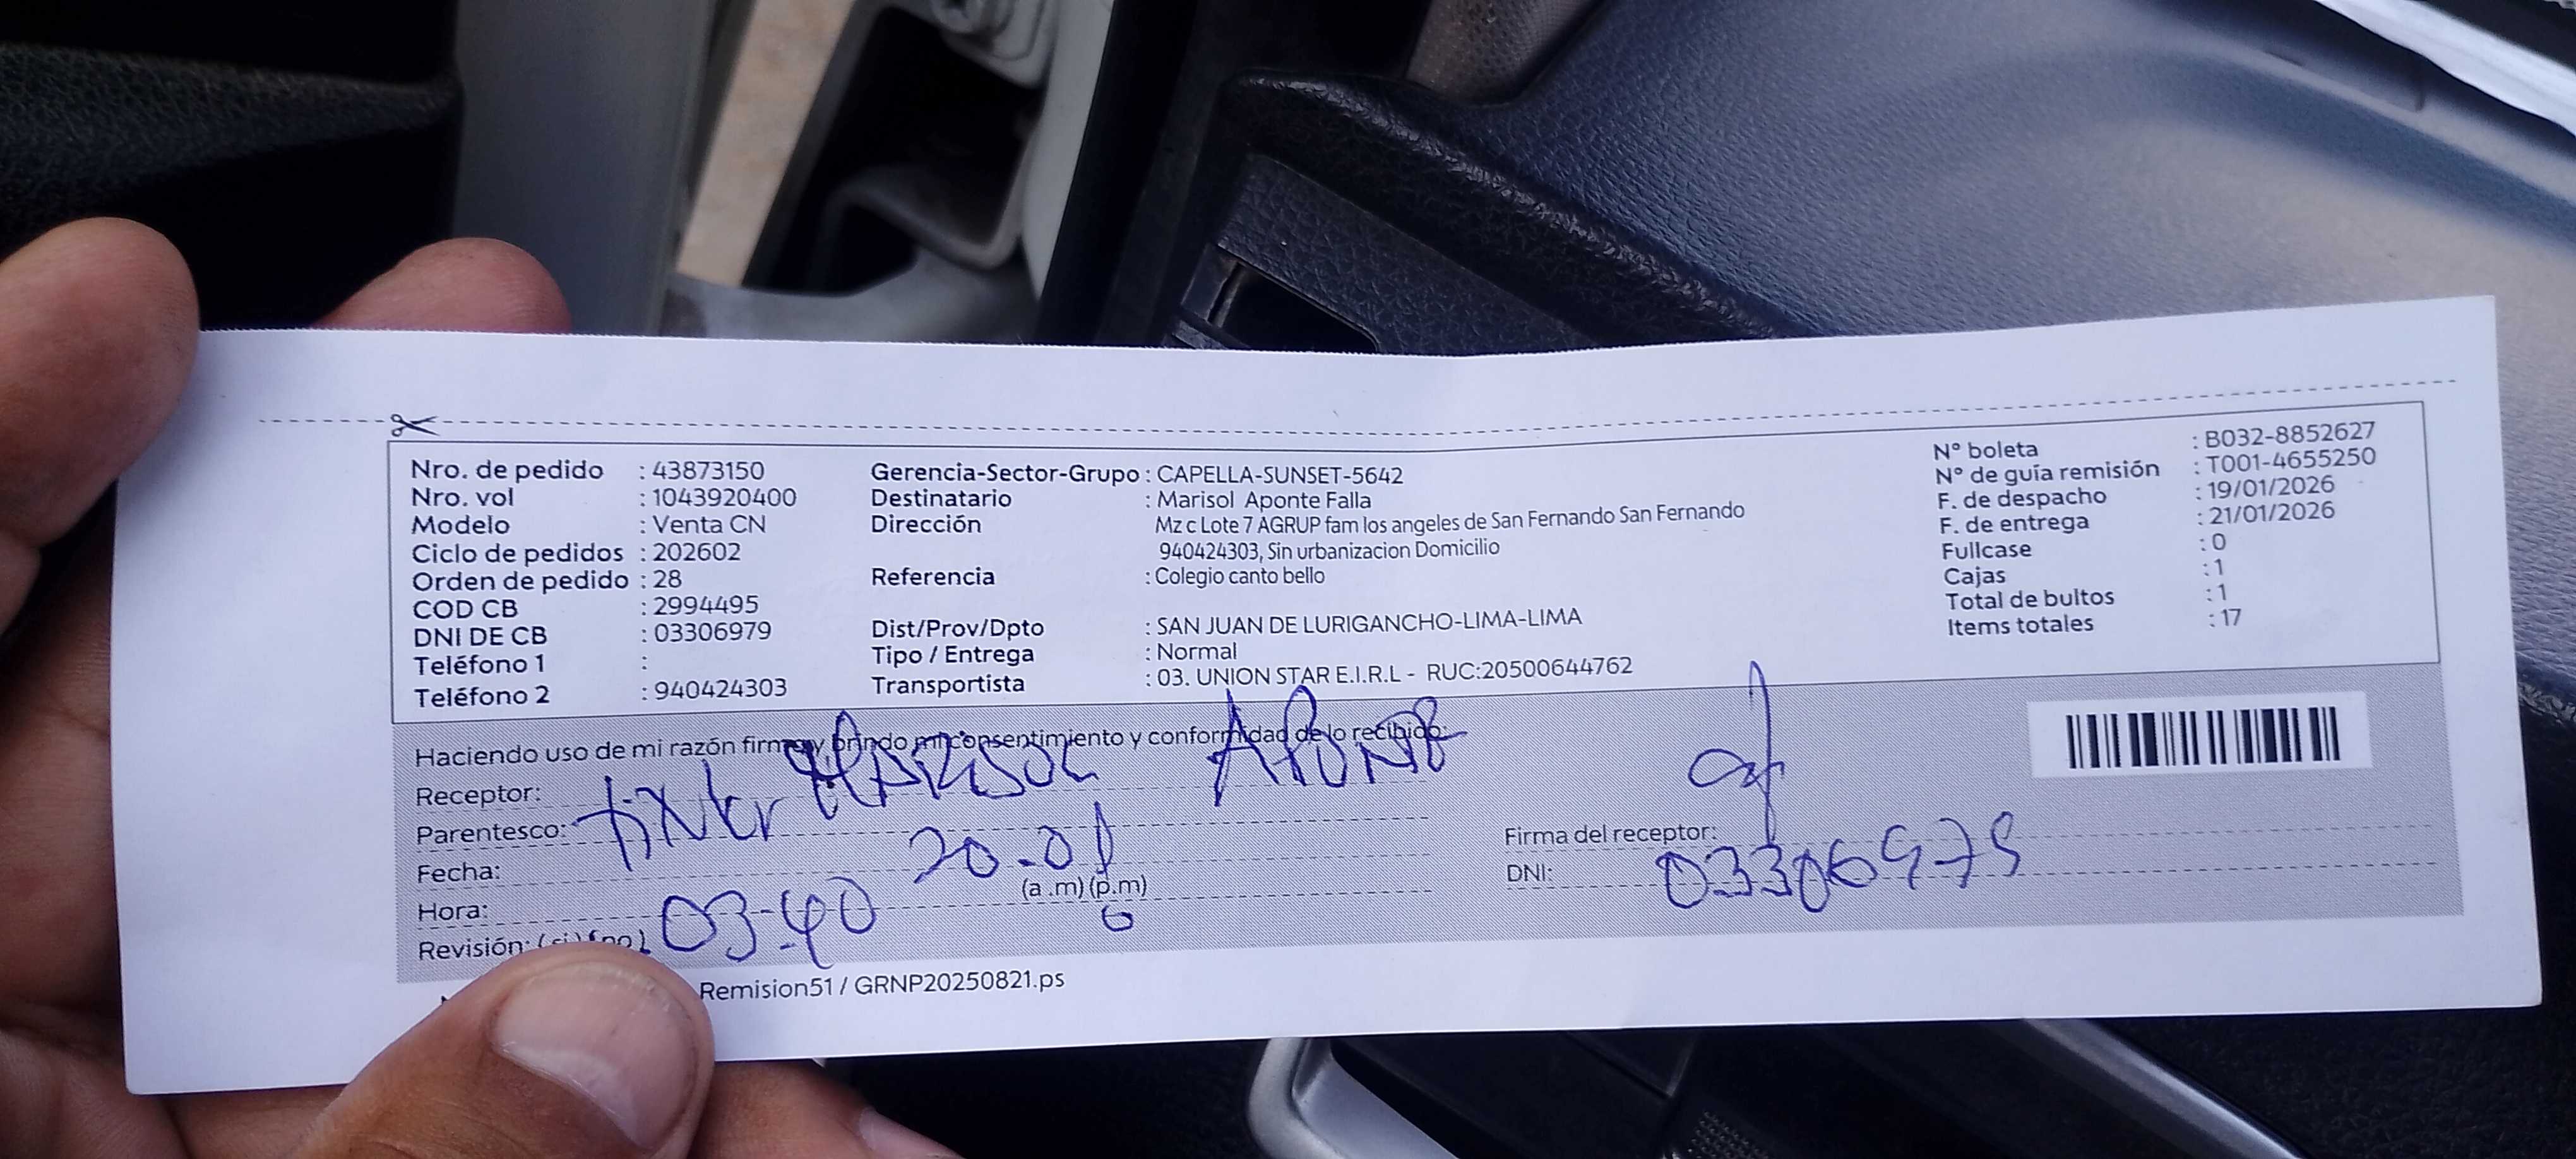 Nro. de pedido : 43873150
Nro. vol : 1043920400
Modelo : Venta CN
Ciclo de pedidos : 202602
Orden de pedido : 28
COD CB : 2994495
DNI DE CB : 03306979
Teléfono 1 :
Teléfono 2 : 940424303
Gerencia-Sector-Grupo : CAPELLA-SUNSET-5642
Destinatario : Marisol Aponte Falla
Dirección : Mz c Lote 7 AGRUP fam los angeles de San Fernando San Fernando
940424303, Sin urbanizacion Domicilio
Referencia : Colegio canto bello
Dist/Prov/Dpto : SAN JUAN DE LURIGANCHO-LIMA-LIMA
Tipo / Entrega : Normal
Transportista : 03. UNION STAR E.I.R.L - RUC:20500644762
N° boleta : B032-8852627
N° de guía remisión : T001-4655250
F. de despacho : 19/01/2026
F. de entrega : 21/01/2026
Fullcase : 0
Cajas : 1
Total de bultos : 1
Items totales : 17
Haciendo uso de mi razón firmo y brindo mi consentimiento y conformidad de lo recibido.
Receptor: MARISOL APONTE
Parentesco:
Fecha: 20-01
Hora: 03-40 (a.m) (p.m)
Revisión: (si) (no)
Firma del receptor:
DNI: 03306979
Remision51 / GRNP20250821.ps